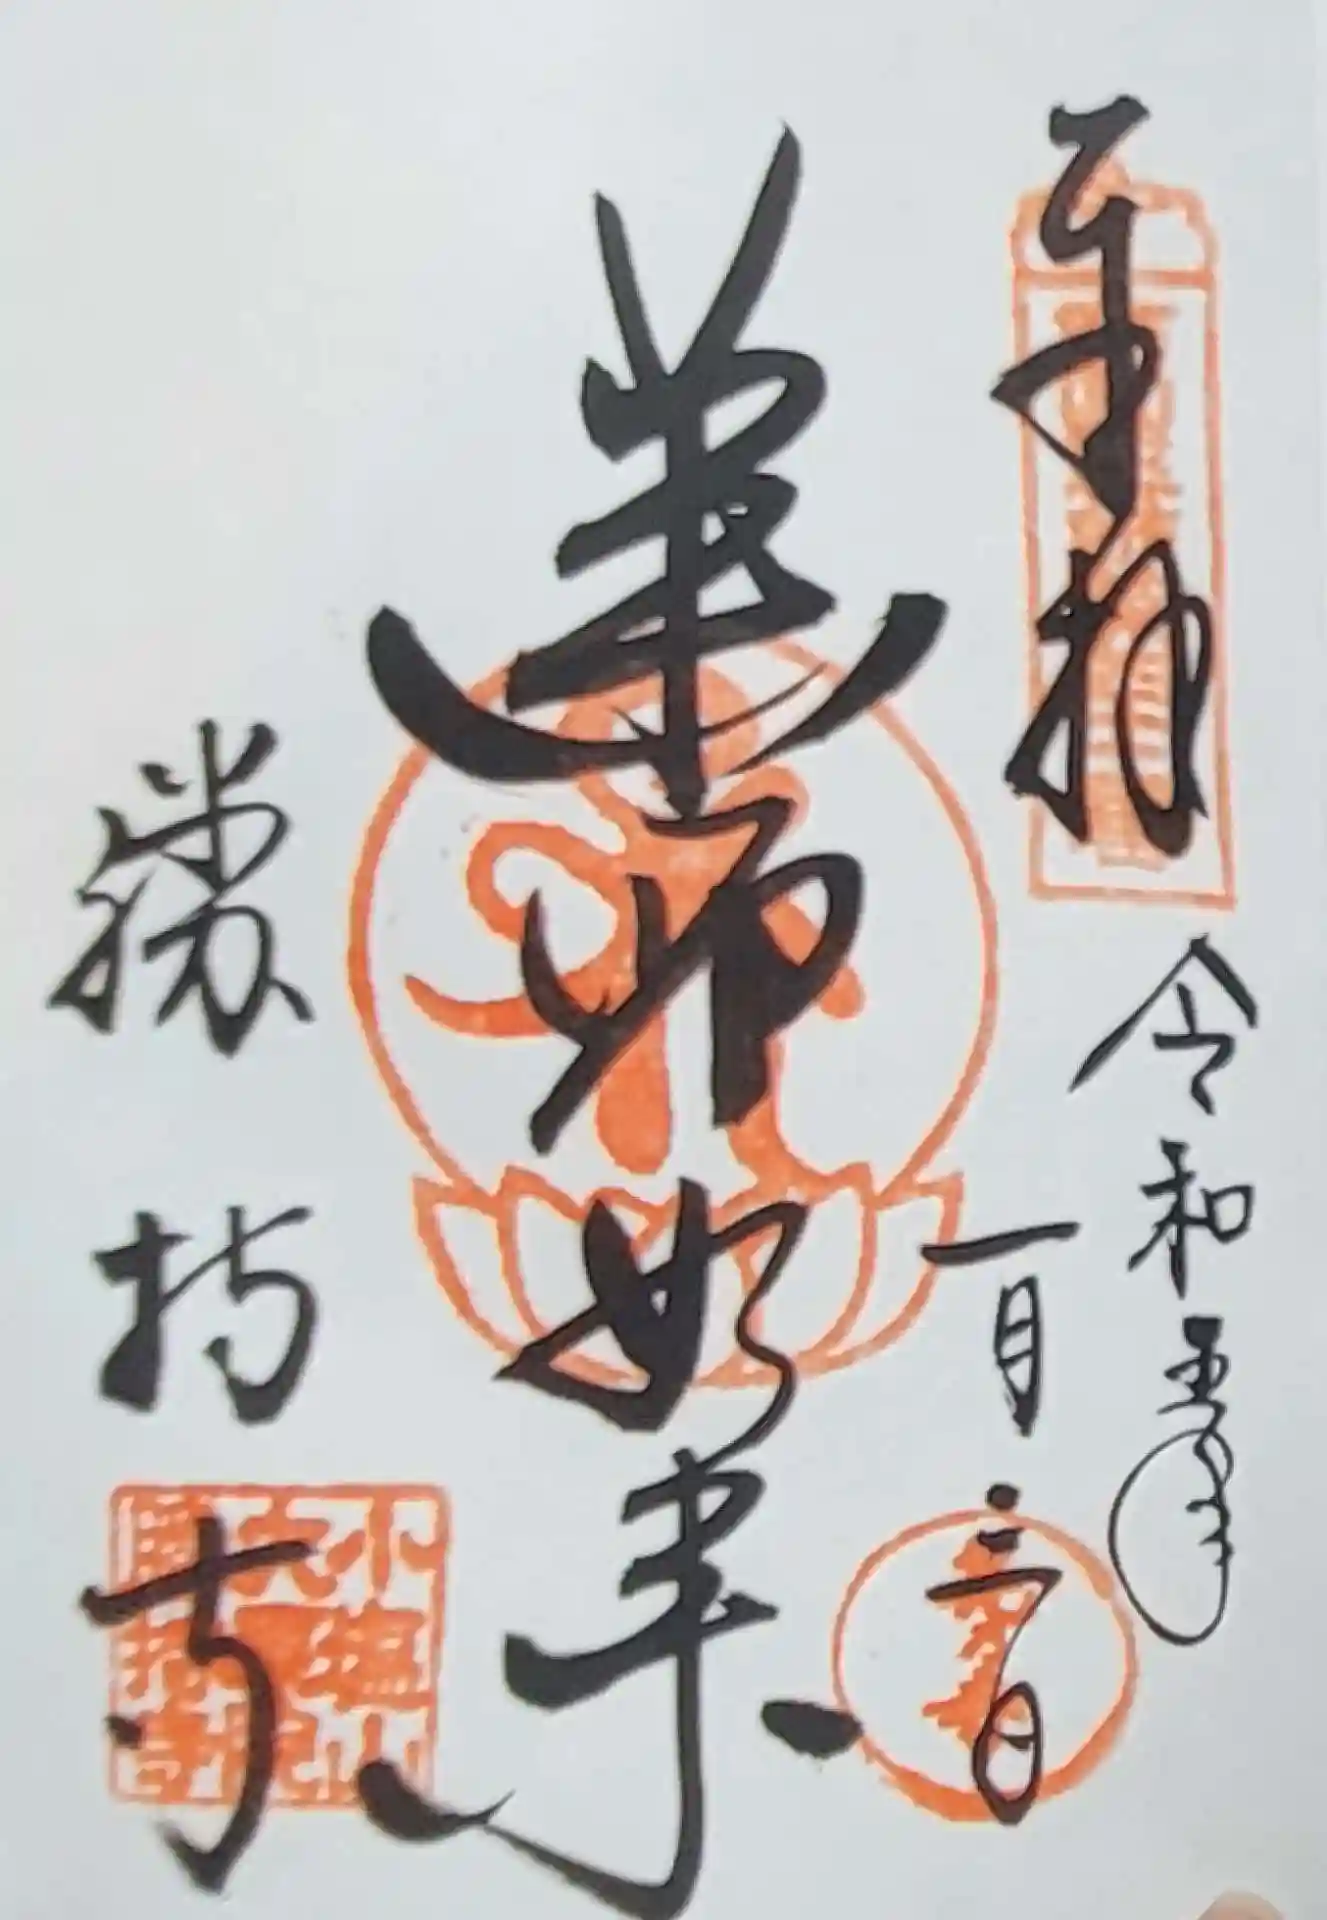 奉拝
令和五年
一月三日
薬師如来
勝持寺